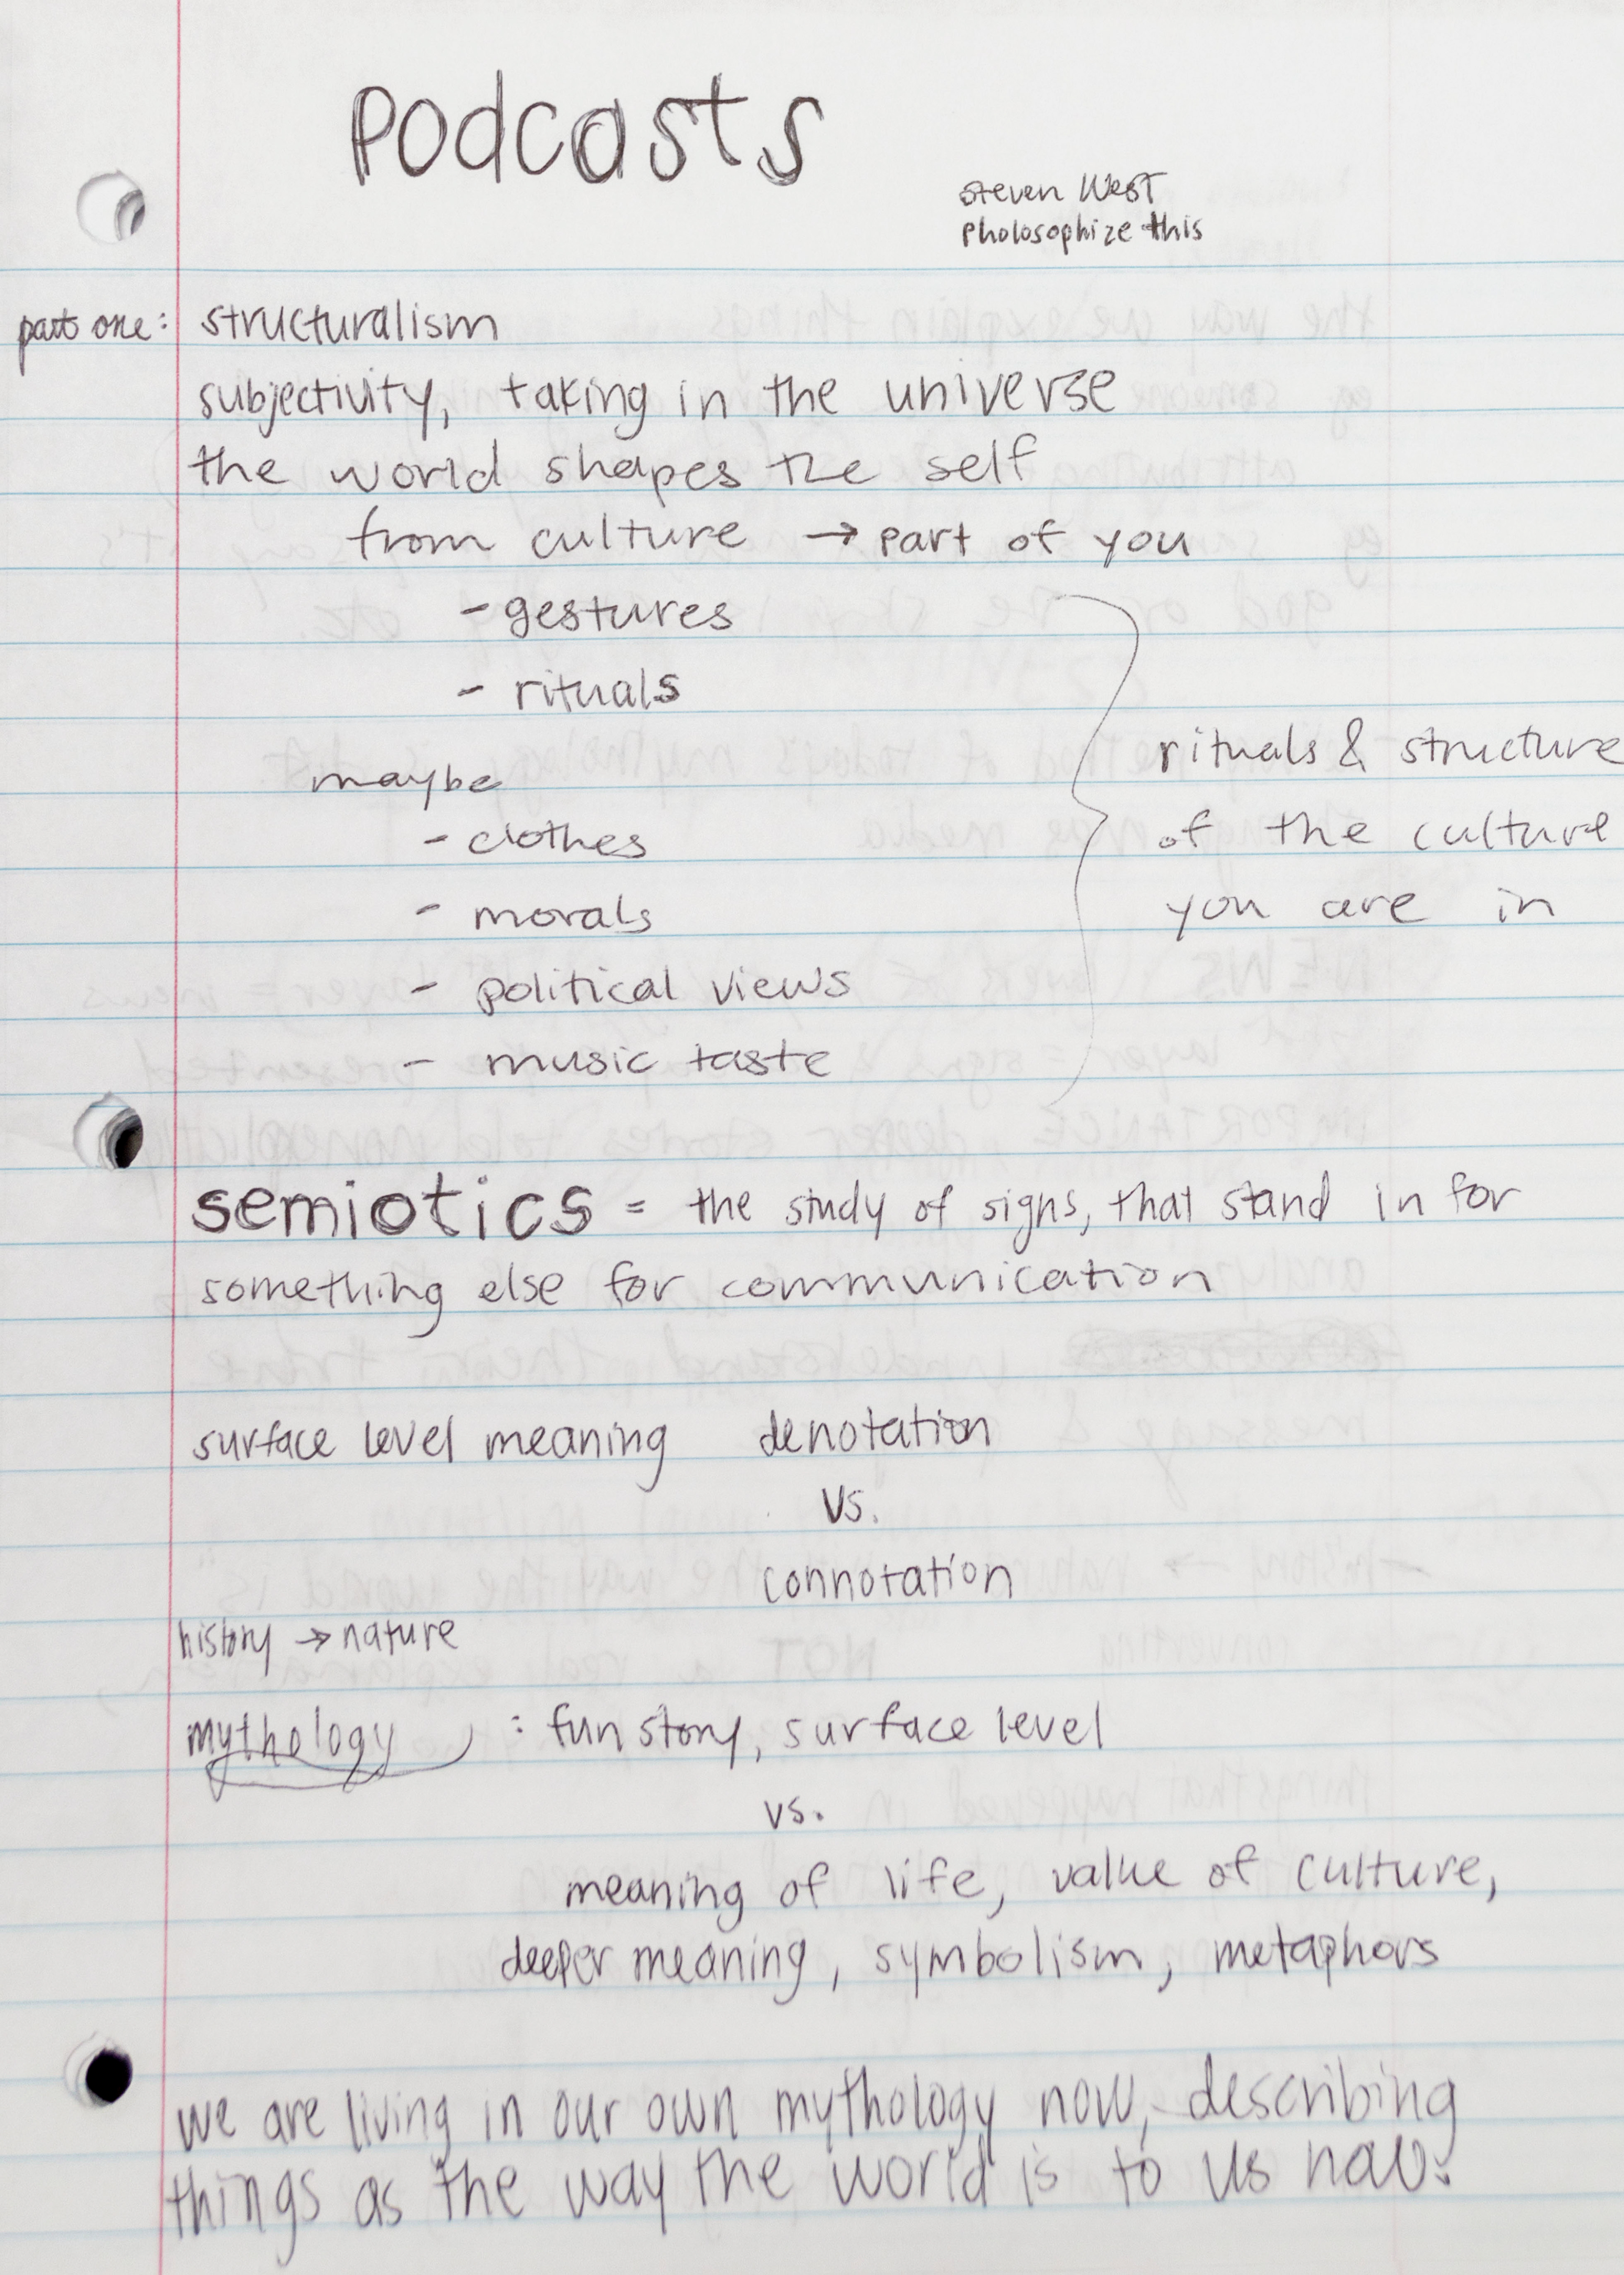 Podcasts
Steven West
Pholosophize this
part one: structuralism
subjectivity, taking in the universe
the world shapes the self
from culture → part of you
- gestures
- rituals
maybe
- clothes
- morals
- political views
- music taste
rituals & structure
of the culture
you are in
semiotics = the study of signs, that stand in for
something else for communication
surface level meaning denotation
vs.
connotation
history → nature
mythology : fun story, surface level
vs.
meaning of life, value of culture,
deeper meaning, symbolism, metaphors
we are living in our own mythology now, describing
things as the way the world is to us now.